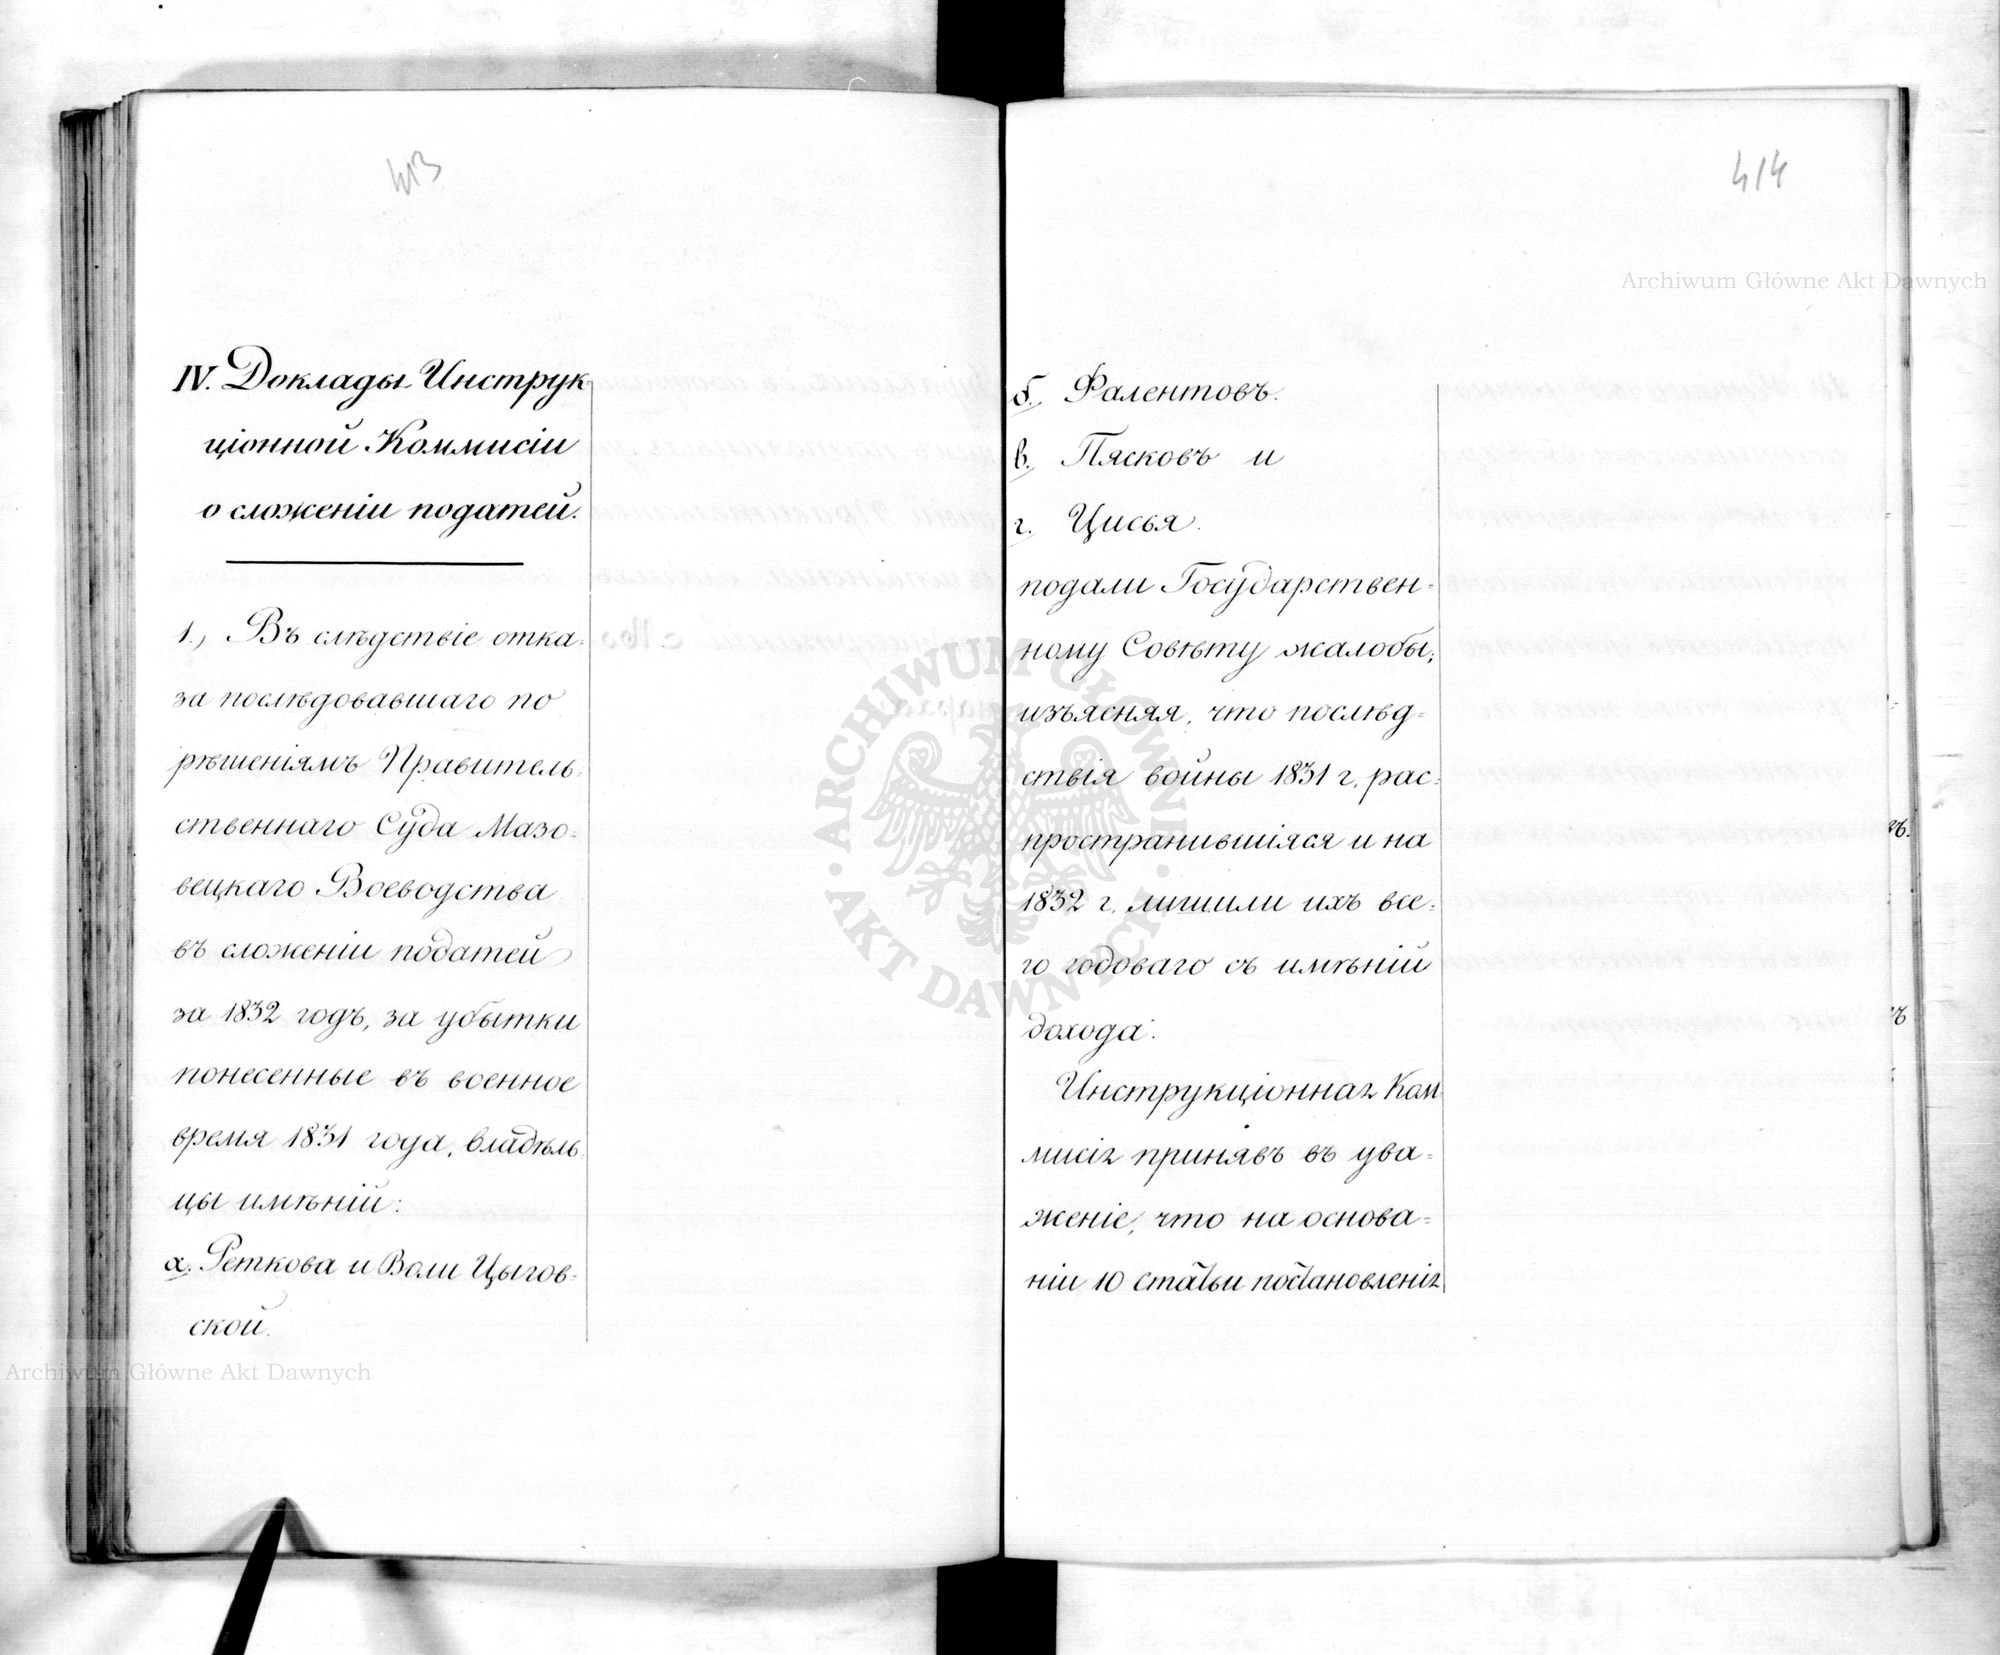 413
IV. Доклады Инструк
ціонной Коммисіи
о сложеніи податей.
1., Въ слѣдствіе отка-
за послѣдовавшаго по
рѣшеніямъ Правитель-
ственнаго Суда Мазо-
вецкаго Воеводства
въ сложеніи податей
за 1832 годъ, за убытки
понесенные въ военное
время 1831 года, владѣль-
цы имѣній:
а. Реткова и Воли Цыгов-
ской.
Archiwum Główne Akt Dawnych
414
Archiwum Główne Akt Dawnych
б. Фалентовъ.
в. Пясковъ и
г. Цисья.
подали Государствен-
ному Совѣту жалобы,
изъясняя, что послѣд-
ствія войны 1831 г. рас-
пространившіяся и на
1832 г. лишили ихъ все-
го годоваго съ имѣній
дохода.
Инструкціонная Ком
мисія принявъ въ ува-
женіе, что на основа-
ніи 10 статьи постановленія
ARCHIWUM GŁÓWNE · AKT DAWNYCH ·